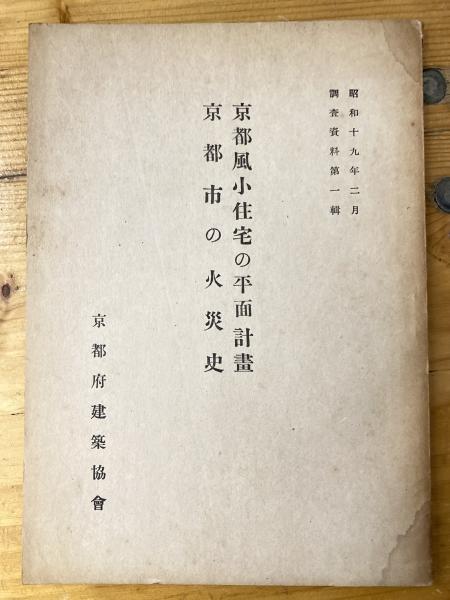 昭和十九年二月
調査資料第一輯
京都風小住宅の平面計畫
京都市の火災史
京都府建築協會